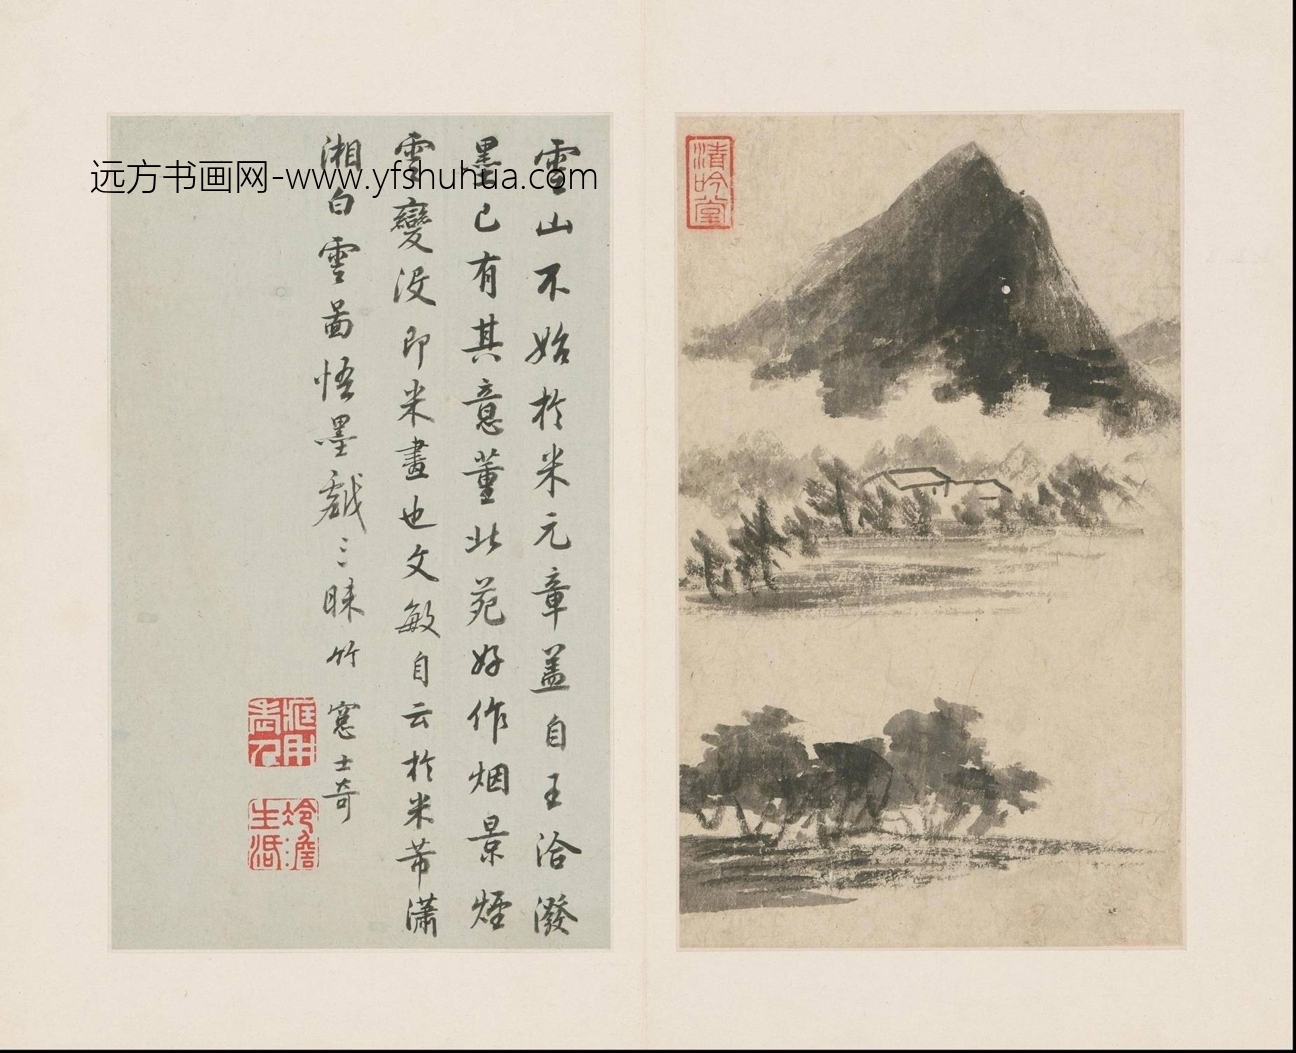 雲山不始於米元章盖自王洽潑
墨已有其意董北苑好作烟景煙
雲變没即米畫也文敏自云於米芾瀟
湘白雲啚悟墨戲三昧竹窓士奇
清吟堂
远方书画网-www.yfshuhua.com